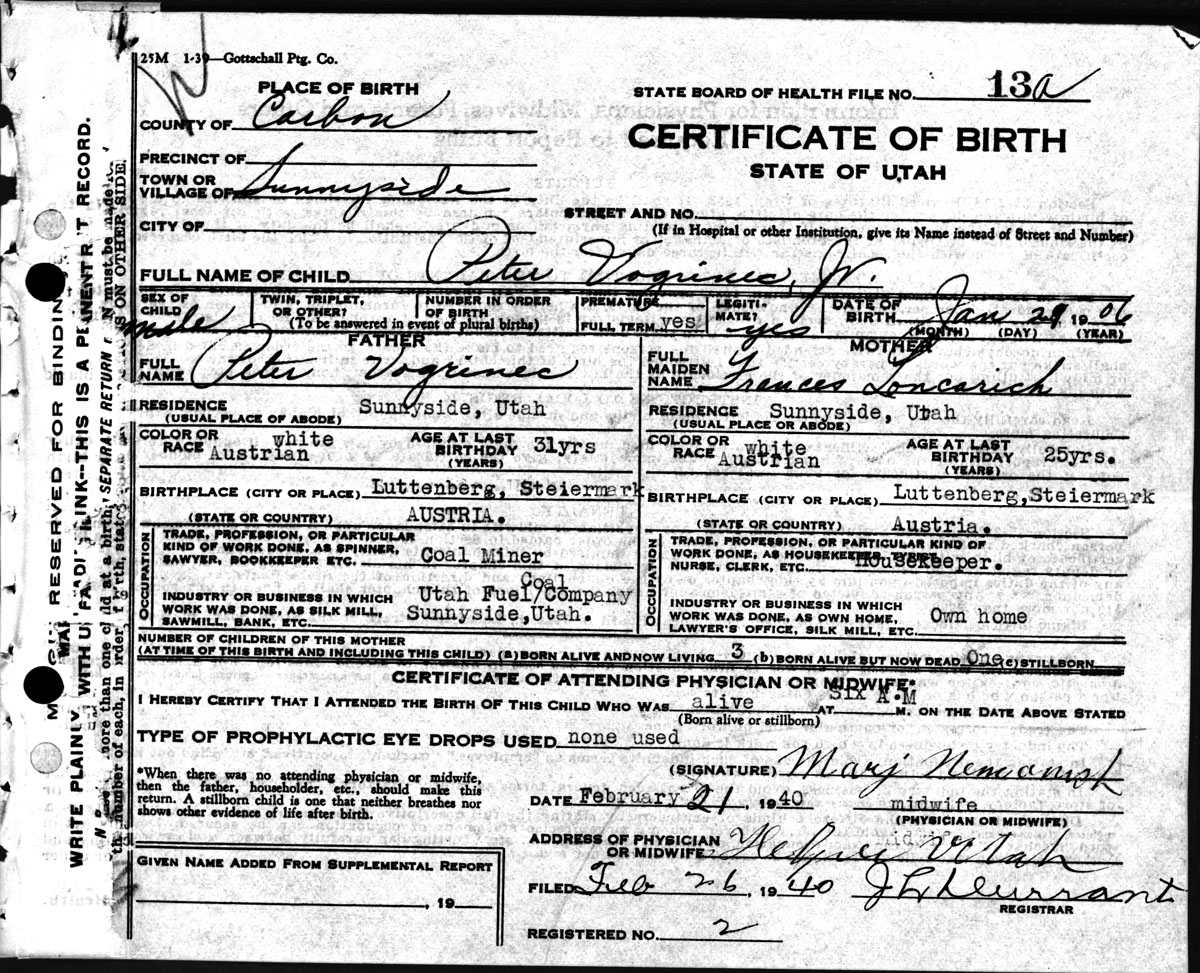 25M 1-39—Gottschall Ptg. Co.
PLACE OF BIRTH
STATE BOARD OF HEALTH FILE NO. 13a
COUNTY OF Carbon
CERTIFICATE OF BIRTH
PRECINCT OF
STATE OF UTAH
TOWN OR
VILLAGE OF Sunnyside
STREET AND NO.
CITY OF
(If in Hospital or other Institution, give its Name instead of Street and Number)
FULL NAME OF CHILD Peter Vogrinec, Jr.
SEX OF CHILD male
TWIN, TRIPLET, OR OTHER?
NUMBER IN ORDER OF BIRTH
(To be answered in event of plural births)
PREMATURE
FULL TERM yes
LEGITIMATE? yes
DATE OF BIRTH Jan 29 1906
(MONTH) (DAY) (YEAR)
FATHER
FULL NAME Peter Vogrinec
RESIDENCE Sunnyside, Utah
(USUAL PLACE OF ABODE)
COLOR OR RACE white Austrian
AGE AT LAST BIRTHDAY 31yrs
(YEARS)
BIRTHPLACE (CITY OR PLACE) Luttenberg, Steiermark
(STATE OR COUNTRY) AUSTRIA.
OCCUPATION
TRADE, PROFESSION, OR PARTICULAR
KIND OF WORK DONE, AS SPINNER,
SAWYER, BOOKKEEPER ETC. Coal Miner
INDUSTRY OR BUSINESS IN WHICH
WORK WAS DONE, AS SILK MILL,
SAWMILL, BANK, ETC.
Utah Fuel/Coal Company
Sunnyside,Utah.
MOTHER
FULL MAIDEN NAME Frances Loncarich
RESIDENCE Sunnyside, Utah
(USUAL PLACE OR ABODE)
COLOR OR RACE white Austrian
AGE AT LAST BIRTHDAY 25yrs.
(YEARS)
BIRTHPLACE (CITY OR PLACE) Luttenberg,Steiermark
(STATE OR COUNTRY) Austria.
OCCUPATION
TRADE, PROFESSION, OR PARTICULAR KIND OF
WORK DONE, AS HOUSEKEEPER, TYPIST,
NURSE, CLERK, ETC. Housekeeper.
INDUSTRY OR BUSINESS IN WHICH
WORK WAS DONE, AS OWN HOME,
LAWYER'S OFFICE, SILK MILL, ETC. Own home
NUMBER OF CHILDREN OF THIS MOTHER
(AT TIME OF THIS BIRTH AND INCLUDING THIS CHILD) (a) BORN ALIVE AND NOW LIVING 3 (b) BORN ALIVE BUT NOW DEAD One (c) STILLBORN
CERTIFICATE OF ATTENDING PHYSICIAN OR MIDWIFE*
I HEREBY CERTIFY THAT I ATTENDED THE BIRTH OF THIS CHILD WHO WAS alive AT Six A.M M. ON THE DATE ABOVE STATED
(Born alive or stillborn)
TYPE OF PROPHYLACTIC EYE DROPS USED none used
*When there was no attending physician or midwife,
then the father, householder, etc., should make this
return. A stillborn child is one that neither breathes nor
shows other evidence of life after birth.
(SIGNATURE) Mary
DATE February 21, 1940 midwife
(PHYSICIAN OR MIDWIFE)
ADDRESS OF PHYSICIAN
OR MIDWIFE Helper Utah
GIVEN NAME ADDED FROM SUPPLEMENTAL REPORT
, 19
FILED Feb 26, 1940 J L Durrant
REGISTRAR
REGISTERED NO. 2
RESERVED FOR BINDING
WRITE PLAINLY, WITH UNFADING INK--THIS IS A PERMANENT RECORD.
more than one child at a birth, SEPARATE RETURN must be made
the number of each, in order of birth, stated ON OTHER SIDE.